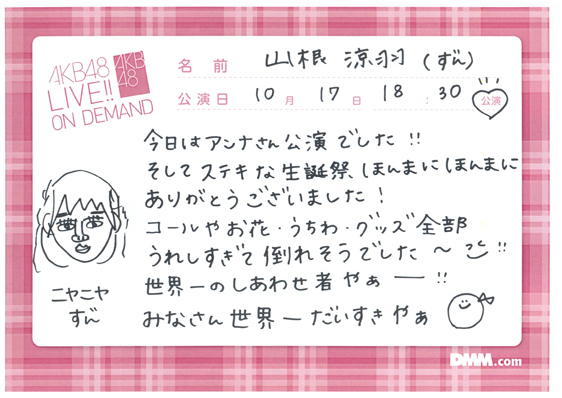 AKB48
LIVE!!
ON DEMAND
AKB
48
名前 山根 涼羽 (ずん)
公演日 10月 17日 18:30 公演
今日はアンナさん公演でした!!
そしてステキな生誕祭 ほんまにほんまに
ありがとうございました!
コールやお花・うちわ・グッズ全部
うれしすぎて倒れそうでした〜!!
世界一のしあわせ者やぁー!!
みなさん世界一だいすきやぁ
ニヤニヤ
ずん
DMM.com